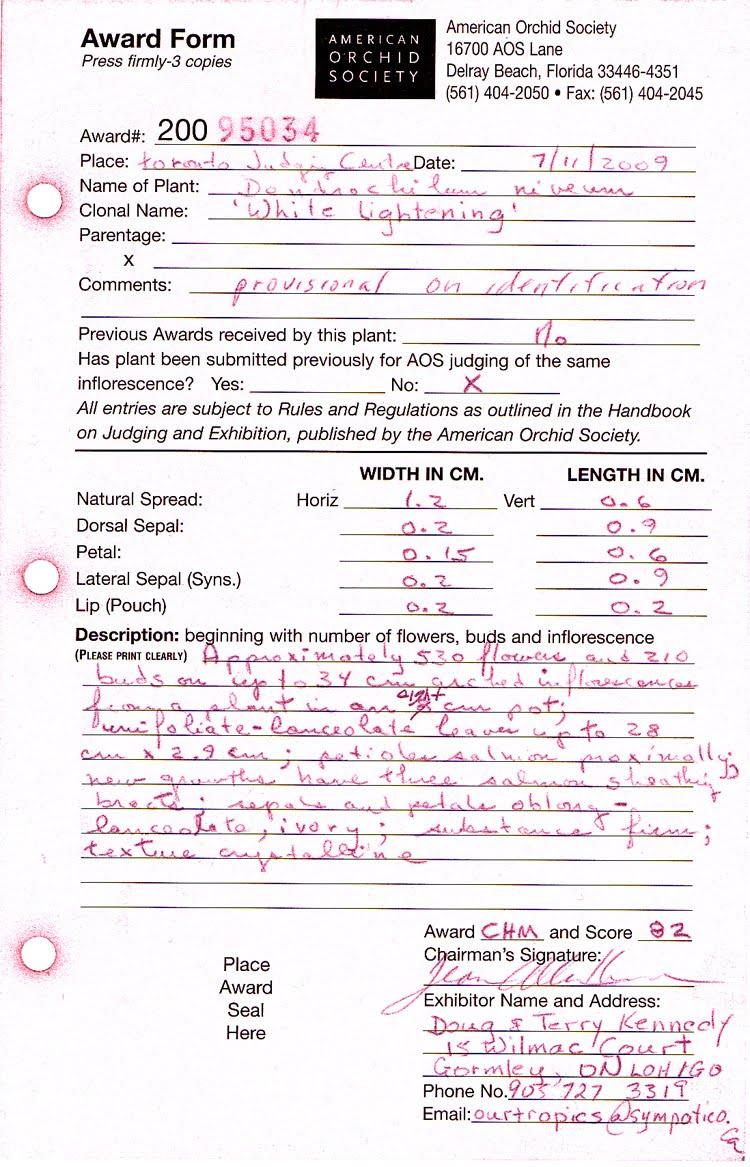 Award Form
Press firmly-3 copies
AMERICAN
ORCHID
SOCIETY
American Orchid Society
16700 AOS Lane
Delray Beach, Florida 33446-4351
(561) 404-2050 • Fax: (561) 404-2045
Award#: 200 95034
Place: toronto Judging Centre Date: 7/11/2009
Name of Plant: Dendrochilum niveum
Clonal Name: 'White Lightening'
Parentage:
x
Comments: provisional on identification
Previous Awards received by this plant: No
Has plant been submitted previously for AOS judging of the same
inflorescence? Yes: No: X
All entries are subject to Rules and Regulations as outlined in the Handbook
on Judging and Exhibition, published by the American Orchid Society.
WIDTH IN CM. LENGTH IN CM.
Natural Spread: Horiz 1.2 Vert 0.6
Dorsal Sepal: 0.2 0.9
Petal: 0.15 0.6
Lateral Sepal (Syns.) 0.2 0.9
Lip (Pouch) 0.2 0.2
Description: beginning with number of flowers, buds and inflorescence
(PLEASE PRINT CLEARLY) Approximately 530 flowers and 210
buds on up to 34 cm arched inflorescences
from a plant in an eight cm pot;
unifoliate-lanceolate leaves up to 28
cm x 2.9 cm; petioles salmon proximally;
new growths have three salmon sheathing
bracts; sepals and petals oblong-
lanceolate, ivory; substance firm;
texture crystalline
Award CHM and Score 82
Chairman's Signature:
Place
Award
Seal
Here
Exhibitor Name and Address:
Doug & Terry Kennedy
15 Wilmac Court
Gormley, ON L0H 1G0
Phone No. 905 727 3319
Email: ourtropics@sympatico.
ca